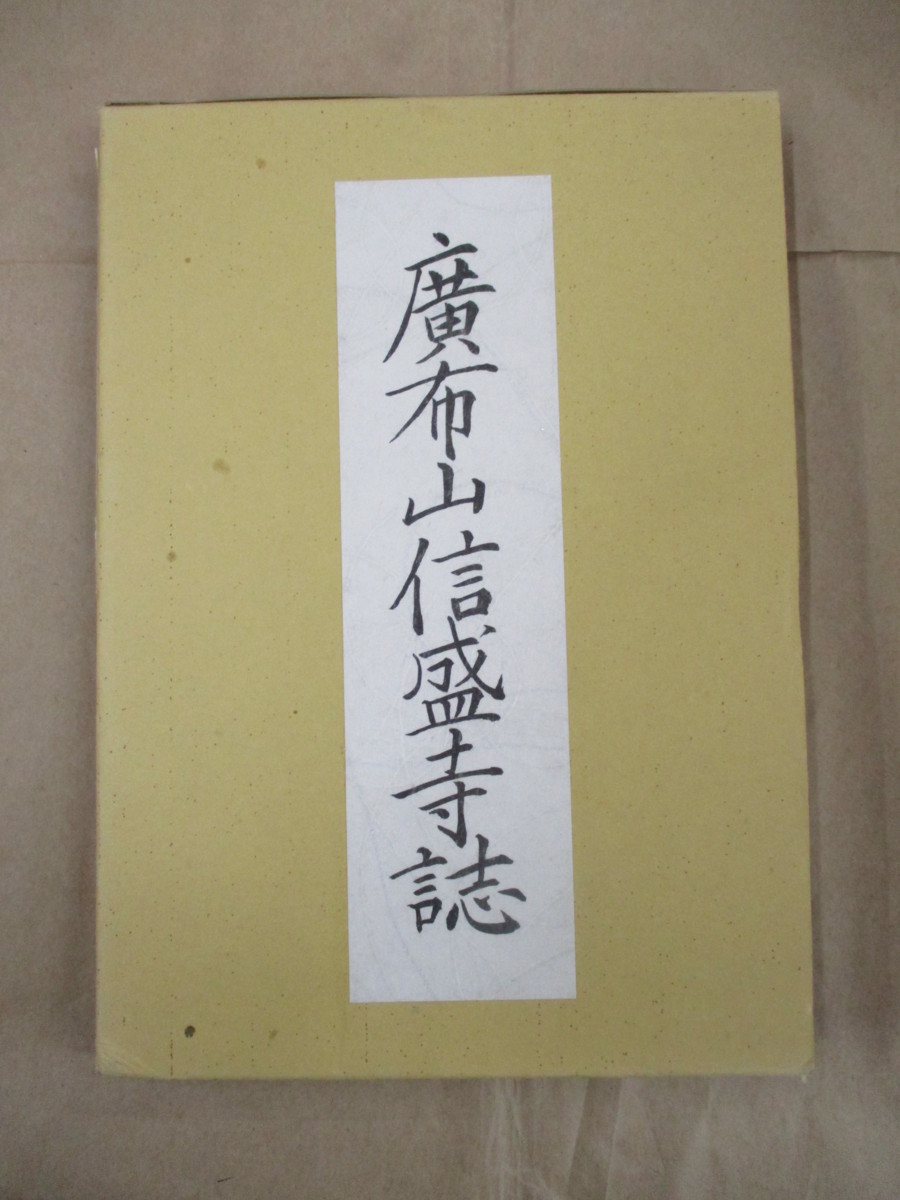 廣布山信盛寺誌